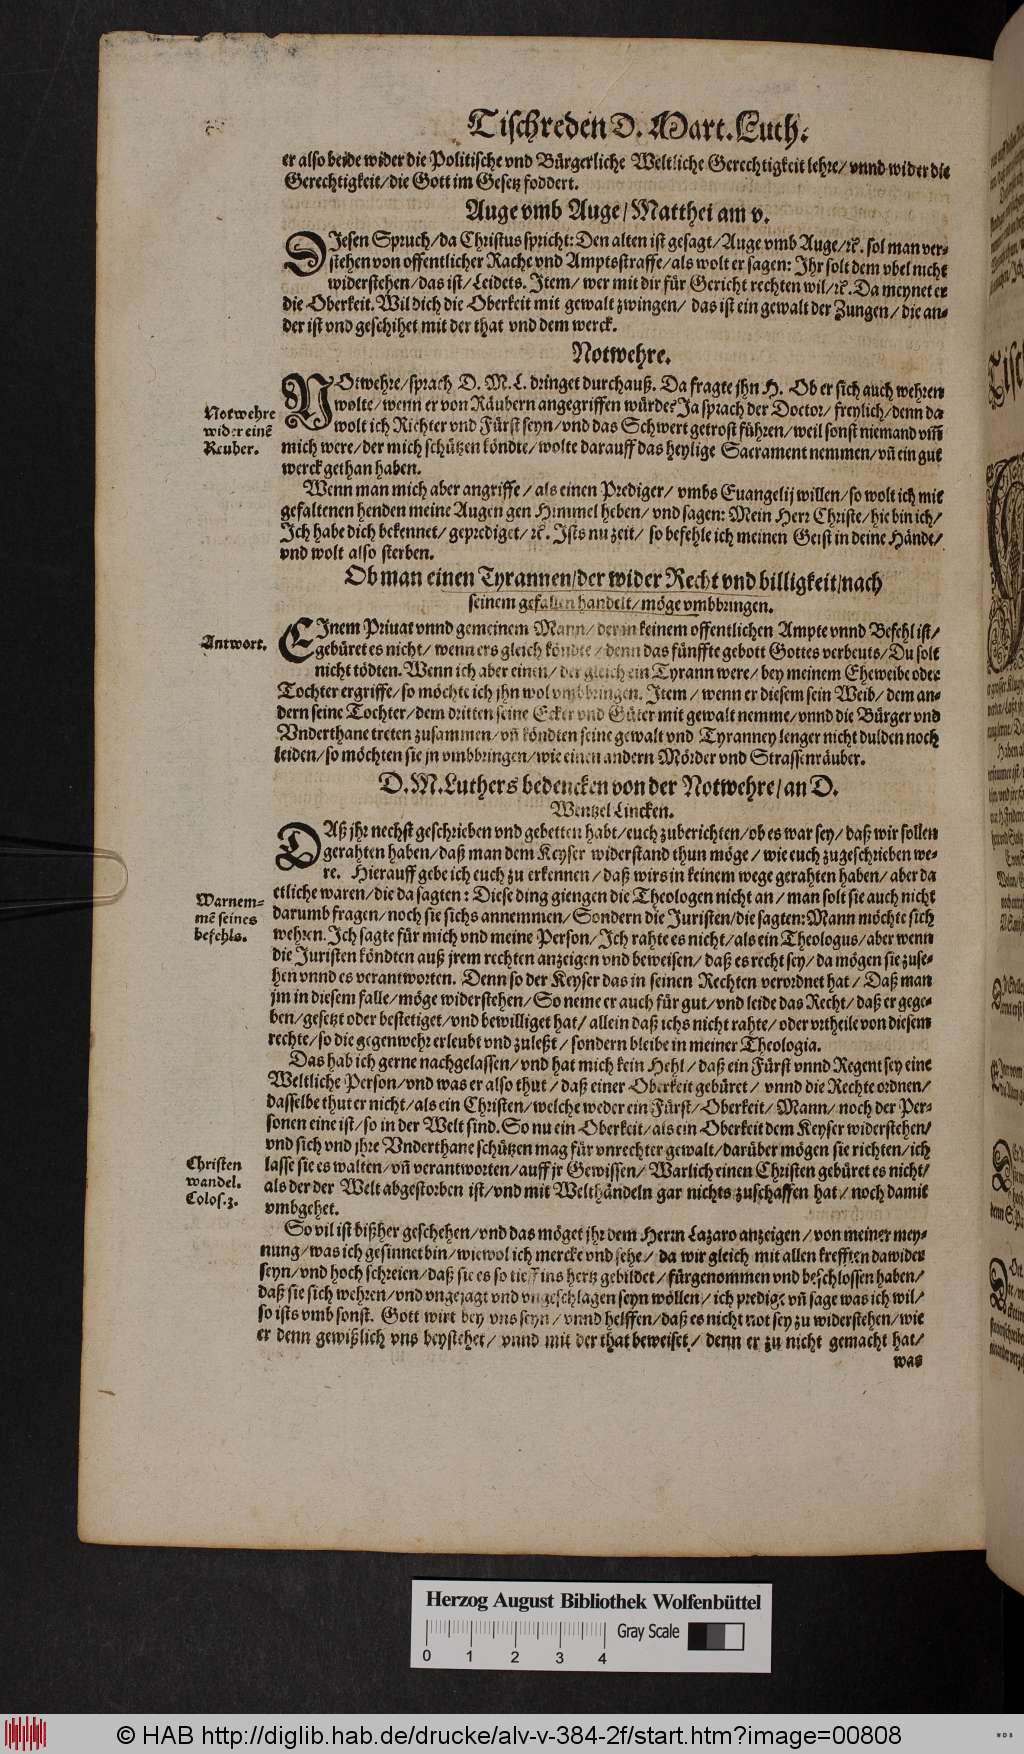 Tischreden D. Mart. Luth:
er also beide wider die Politische vnd Bürgerliche Weltliche Gerechtigkeit lehre/ vnnd wider die
Gerechtigkeit/die Gott im Gesetz foddert.
Auge vmb Auge/Matthei am v.
DIesen Spruch/da Christus spricht: Den alten ist gesagt/Auge vmb Auge/ꝛc. sol man ver-
stehen von offentlicher Rache vnd Amptsstraffe/als wolt er sagen: Ihr solt dem vbel nicht
widerstehen/das ist/Leidets. Item/ wer mit dir für Gericht rechten wil/ꝛc. Da meynet er
die Oberkeit. Wil dich die Oberkeit mit gewalt zwingen/ das ist ein gewalt der Zungen/ die an-
der ist vnd geschihet mit der that vnd dem werck.
Notwehre.
Notwehre
wider einē
Reuber.
NOtwehre/sprach D. M. L. dringet durchauß. Da fragte jhn H. Ob er sich auch wehren
wolte/wenn er von Räubern angegriffen würde? Ja sprach der Doctor/ freylich/denn da
wolt ich Richter vnd Fürst seyn/vnd das Schwert getrost führen/weil sonst niemand vm̃
mich were/der mich schützen köndte/wolte darauff das heylige Sacrament nemmen/vñ ein gut
werck gethan haben.
Wenn man mich aber angriffe/ als einen Prediger/ vmbs Euangelij willen/so wolt ich mit
gefaltenen henden meine Augen gen Himmel heben/ vnd sagen: Mein Herr Christe/hie bin ich/
Ich habe dich bekennet/ geprediget/ꝛc. Ists nu zeit/ so befehle ich meinen Geist in deine Hände/
vnd wolt also sterben.
Ob man einen Tyrannen/der wider Recht vnd billigkeit/nach
seinem gefallen handelt/möge vmbbringen.
Antwort.
EInem Priuat vnnd gemeinem Mann/ der in keinem offentlichen Ampte vnnd Befehl ist/
gebüret es nicht/ wenn ers gleich köndte/denn das fünffte gebott Gottes verbeuts/Du solt
nicht tödten. Wenn ich aber einen/ der gleich ein Tyrann were/ bey meinem Eheweibe oder
Tochter ergriffe/so möchte ich jhn wol vmbbringen. Item/ wenn er diesem sein Weib/ dem an-
dern seine Tochter/dem dritten seine Ecker vnd Güter mit gewalt nemme/vnnd die Bürger vnd
Vnderthane treten zusammen/vñ köndten seine gewalt vnd Tyranney lenger nicht dulden noch
leiden/so möchten sie jn vmbbringen/wie einen andern Mörder vnd Strassenräuber.
D. M. Luthers bedencken von der Notwehre/an D.
Wentzel Lincken.
DAß jhr nechst geschrieben vnd gebetten habt/euch zuberichten/ob es war sey/ daß wir sollen
gerahten haben/daß man dem Keyser widerstand thun möge/ wie euch zugeschrieben we-
re. Hierauff gebe ich euch zu erkennen/ daß wirs in keinem wege gerahten haben/aber da
Warnem-
mē seines
befehls.
etliche waren/die da sagten: Diese ding giengen die Theologen nicht an/ man solt sie auch nicht
darumb fragen/noch sie sichs annemmen/Sondern die Juristen/die sagten: Mann möchte sich
wehren. Ich sagte für mich vnd meine Person/Ich rahte es nicht/als ein Theologus/aber wenn
die Juristen köndten auß jrem rechten anzeigen vnd beweisen/ daß es recht sey/ da mögen sie zuse-
hen vnnd es verantworten. Denn so der Keyser das in seinen Rechten verordnet hat/ Daß man
jm in diesem falle/möge widerstehen/So neme er auch für gut/vnd leide das Recht/ daß er gege-
ben/gesetzt oder bestetiget/vnd bewilliget hat/ allein daß ichs nicht rahte/ oder vrtheile von diesem
rechte/so die gegenwehr erleubt vnd zuleßt/ sondern bleibe in meiner Theologia.
Das hab ich gerne nachgelassen/vnd hat mich kein Hehl/ daß ein Fürst vnnd Regent sey eine
Weltliche Person/vnd was er also thut/ daß einer Oberkeit gebüret/ vnnd die Rechte ordnen/
dasselbe thut er nicht/als ein Christen/welche weder ein Fürst/Oberkeit/ Mann/ noch der Per-
sonen eine ist/so in der Welt sind. So nu ein Oberkeit/als ein Oberkeit dem Keyser widerstehen/
vnd sich vnd jhre Vnderthane schützen mag für vnrechter gewalt/darüber mögen sie richten/ich
Christen
wandel.
Colos. 3.
lasse sie es walten/vñ verantworten/auff jr Gewissen/ Warlich einen Christen gebüret es nicht/
als der der Welt abgestorben ist/vnd mit Welthändeln gar nichts zuschaffen hat/ noch damit
vmbgehet.
So vil ist bißher geschehen/vnd das möget jhr dem Herrn Lazaro anzeigen/ von meiner mey-
nung/was ich gesinnet bin/wiewol ich mercke vnd sehe/ da wir gleich mit allen krefften dawider
seyn/vnd hoch schreien/daß sie es so tieff ins hertz gebildet/ fürgenommen vnd beschlossen haben/
daß sie sich wehren/vnd vngejagt vnd vngeschlagen seyn wöllen/ ich predige vñ sage was ich wil/
so ists vmb sonst. Gott wirt bey vns seyn/ vnnd helffen/daß es nicht not sey zu widerstehen/wie
er denn gewißlich vns beystehet/ vnnd mit der that beweiset/ denn er zu nicht gemacht hat/
was
Herzog August Bibliothek Wolfenbüttel
Gray Scale
0 1 2 3 4
© HAB http://diglib.hab.de/drucke/alv-v-384-2f/start.htm?image=00808